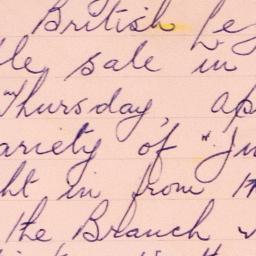 British Leg
le sale in
Thursday, ap
ariety of "Ju
ht in from
the Branch